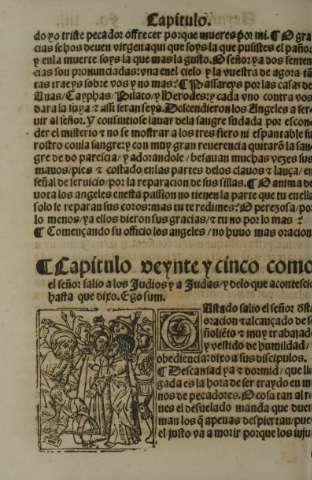 Capitulo.
do yo triste pecador offrecer porque mueres por mi. ¶ O gra
cias se hos deuen virgen aqui que soys la que pusistes el paño:
y en la muerte soys la que mas la gusto. O señor ya dos senten
cias son pronunciadas: vna en el cielo y la vuestra de agora
tas traeys sobre vos y no mas: ¶ Passareys por las casas de
Anas/ Cayphas/ Pilato/ y Herodes: y cada vno contra vos
dara la suya: assi seran seys. Descendieron los Angeles a ser-
uir al señor. Y consintiose lauar dela sangre sudada por escon-
der el misterio: y no se mostrar a los tres fiero ni espantable su
rostro con la sangre: y con muy gran reuerencia quitarō la san-
gre de do parescia/ y adorandole/ besauan muchas vezes sus
manos/ pies: costado en las partes delos clauos: lāça/ en
señal de seruicio/ por la reparacion de sus sillas. ¶ O anima de
uota los angeles enesta passion no tienen la parte que tu en ella
solo se reparan sus coros: mas tu te redimes: O perezosa/ por
lo menos/ ya ellos dieron sus gracias/ tu no por lo mas:
¶ Començando su officio los angeles/ no huuo mas oracion
¶ Capitulo veynte y cinco como
el señor salio a los Judios y a Judas/ y delo que acontescio
hasta que dixo. Ego sum.
salido el señor
oracion alcançado de
y muy trabajado
y vestido de humildad/
obediencia: dixo a sus discipulos.
¶ Descansad ya: dormid/ que lle
gada es la hora de ser traydo en ma
nos de pecadores. O cosa tan al re
ues el desuelado manda que duer
man los q̄ apenas despiertan/ pues
el justo va a morir por que los inju